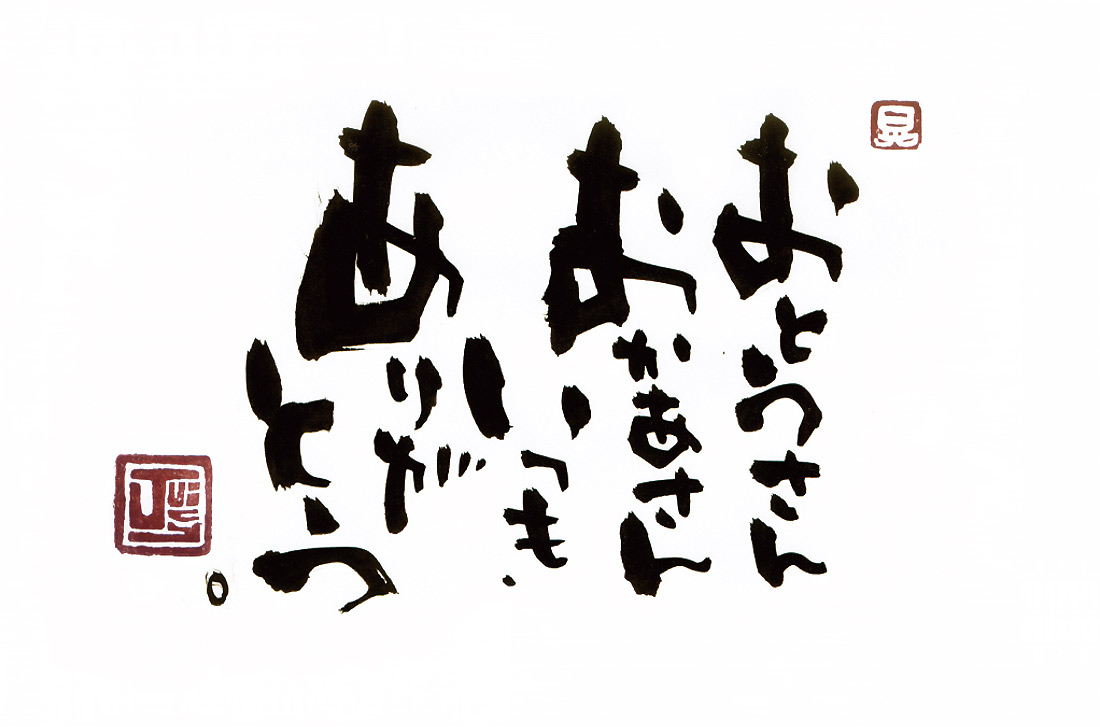 おとうさん
おかあさん
いつも
ありが
とう。
晃